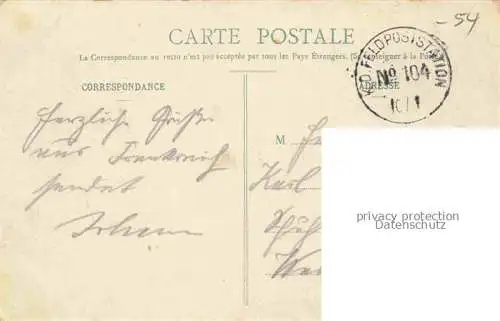 -54
CARTE POSTALE
La Correspondance au recto n'est pas acceptée par tous les Pays Étrangers. (Se renseigner à la Poste
K.D. FELDPOSTSTATION
No 104
10/1
CORRESPONDANCE
ADRESSE
Herzliche Grüße
aus Frankreich
sendet
M
Karl
privacy protection
Datenschutz